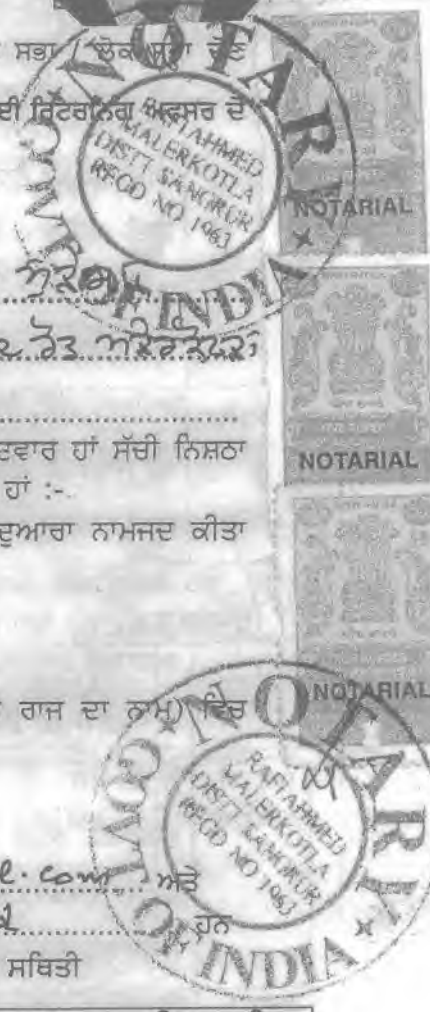 ਸਭਾ / ਲੋਕ ਸਭਾ ਚੋਣ
ਰਿਟਰਨਿੰਗ ਅਫਸਰ ਦੇ
NOTARY
GOVT OF INDIA
RAFI AHMED
MALERKOTLA
DISTT SANGRUR
REGD NO 1963
NOTARIAL
ਰੋਡ
NOTARIAL
ਹਾਂ ਸੱਚੀ ਨਿਸ਼ਠਾ
ਹਾਂ :-
ਦੁਆਰਾ ਨਾਮਜਦ ਕੀਤਾ
NOTARIAL
ਰਾਜ ਦਾ ਨਾਮ) ਵਿਚ
NOTARY
GOVT OF INDIA
RAFI AHMED
MALERKOTLA
DISTT SANGRUR
REGD NO 1963
ਅਤੇ
ਹਨ
ਸਥਿਤੀ